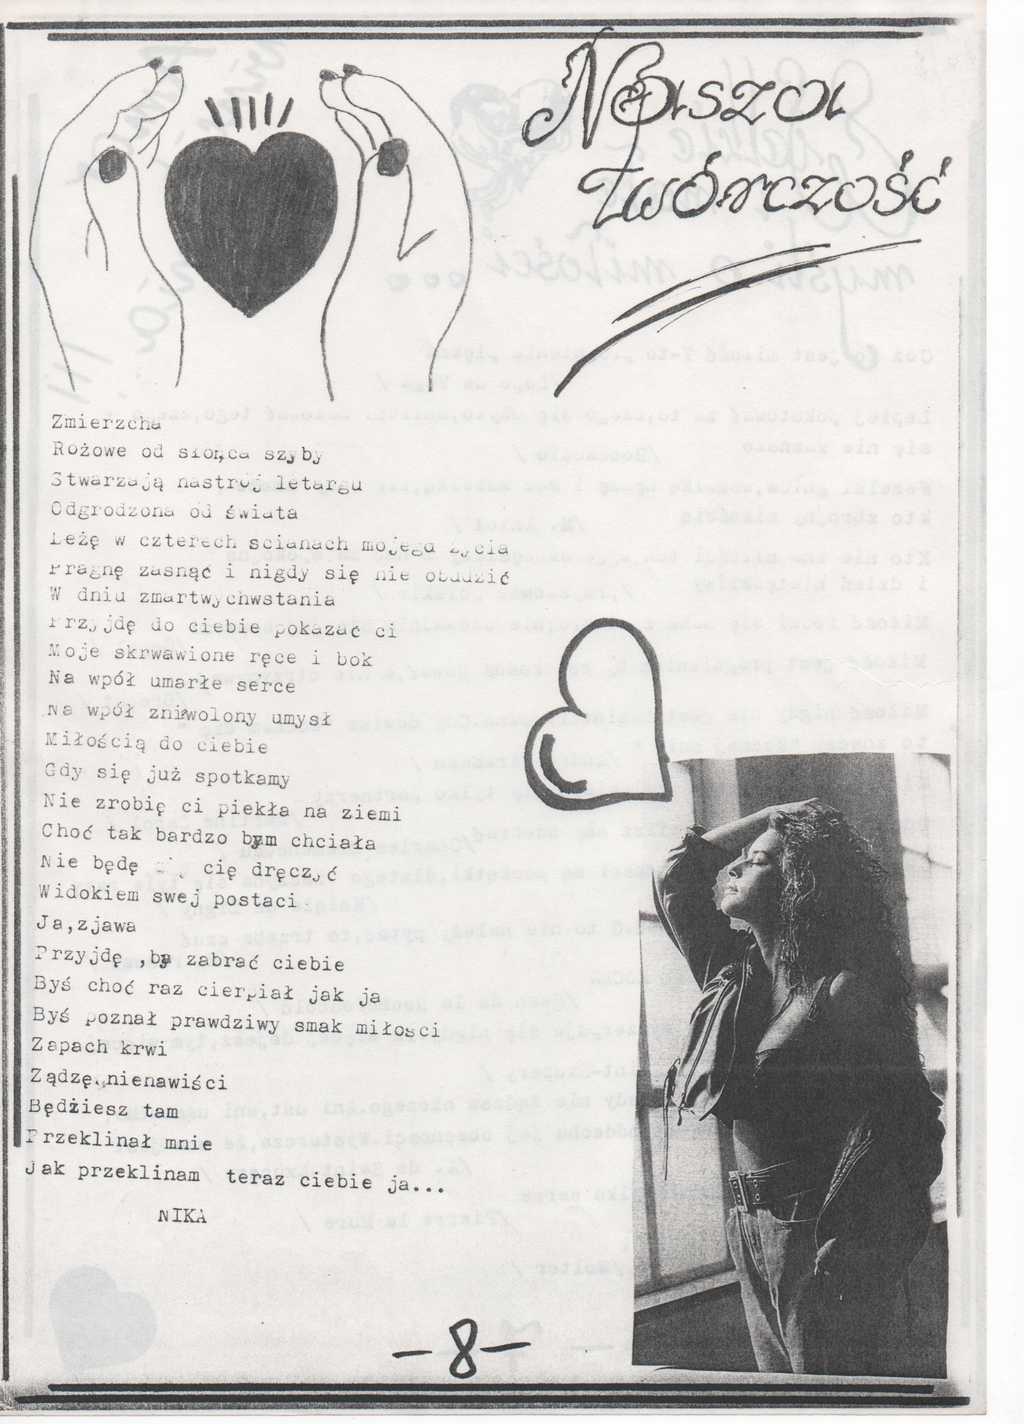 Nasza
twórczość
Zmierzcha
Rożowe od słońca szyby
Stwarzają nastrój letargu
Odgrodzona od świata
Leżę w czterech scianach mojego życia
Pragnę zasnąć i nigdy się nie obudzić
W dniu zmartwychwstania
Przyjdę do ciebie pokazać ci
Moje skrwawione ręce i bok
Na wpół umarłe serce
Na wpół zniwolony umysł
Miłością do ciebie
Gdy się już spotkamy
Nie zrobię ci piekła na ziemi
Choć tak bardzo bym chciała
Nie będę cię dręczyć
Widokiem swej postaci
Ja,zjawa
Przyjdę ,by zabrać ciebie
Byś choć raz cierpiał jak ja
Byś poznał prawdziwy smak miłosci
Zapach krwi
Ządzę,nienawiści
Będziesz tam
Przeklinał mnie
Jak przeklinam teraz ciebie ja...
NIKA
-8-